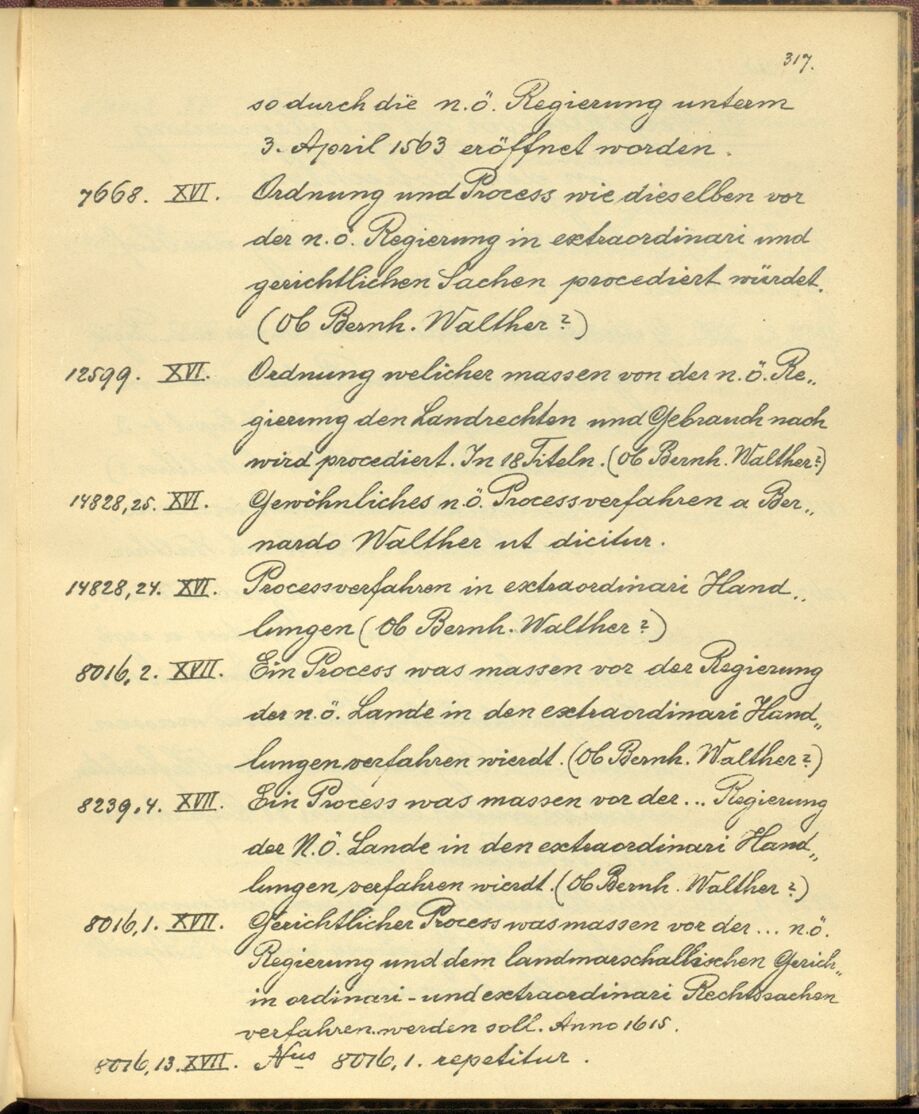 317.
so durch die n.ö. Regierung unterm
3. April 1563 eröffnet worden.
7668. XVI. Ordnung und Process wie dieselben vor
der n.ö. Regierung in extraordinari und
gerichtlichen Sachen procediert würdet.
(Ob Bernh. Walther?)
12599. XVI. Ordnung welicher massen von der n.ö. Re„
gierung den Landrechten und Gebrauch nach
wird procediert. In 18 Titeln. (Ob Bernh. Walther?)
14828,25. XVI. Gewöhnliches n.ö. Processverfahren a Ber„
nardo Walther ut dicitur.
14828,24. XVI. Processverfahren in extraordinari Hand„
lungen (Ob Bernh. Walther?)
8016,2. XVII. Ein Process was massen vor der Regierung
der n.ö. Lande in den extraordinari Hand„
lungen verfahren wierdt. (Ob Bernh. Walther?)
8239,4. XVII. Ein Process was massen vor der ... Regierung
der N.Ö. Lande in den extraordinari Hand„
lungen verfahren wierdt. (Ob Bernh. Walther?)
8016,1. XVII. Gerichtlicher Process was massen vor der ... n.ö.
Regierung und dem landmarschallischen Gerich„
in ordinari- und extraordinari Rechtssachen
verfahren werden soll. Anno 1615.
8016,13. XVII. Nus 8016,1. repetitur.